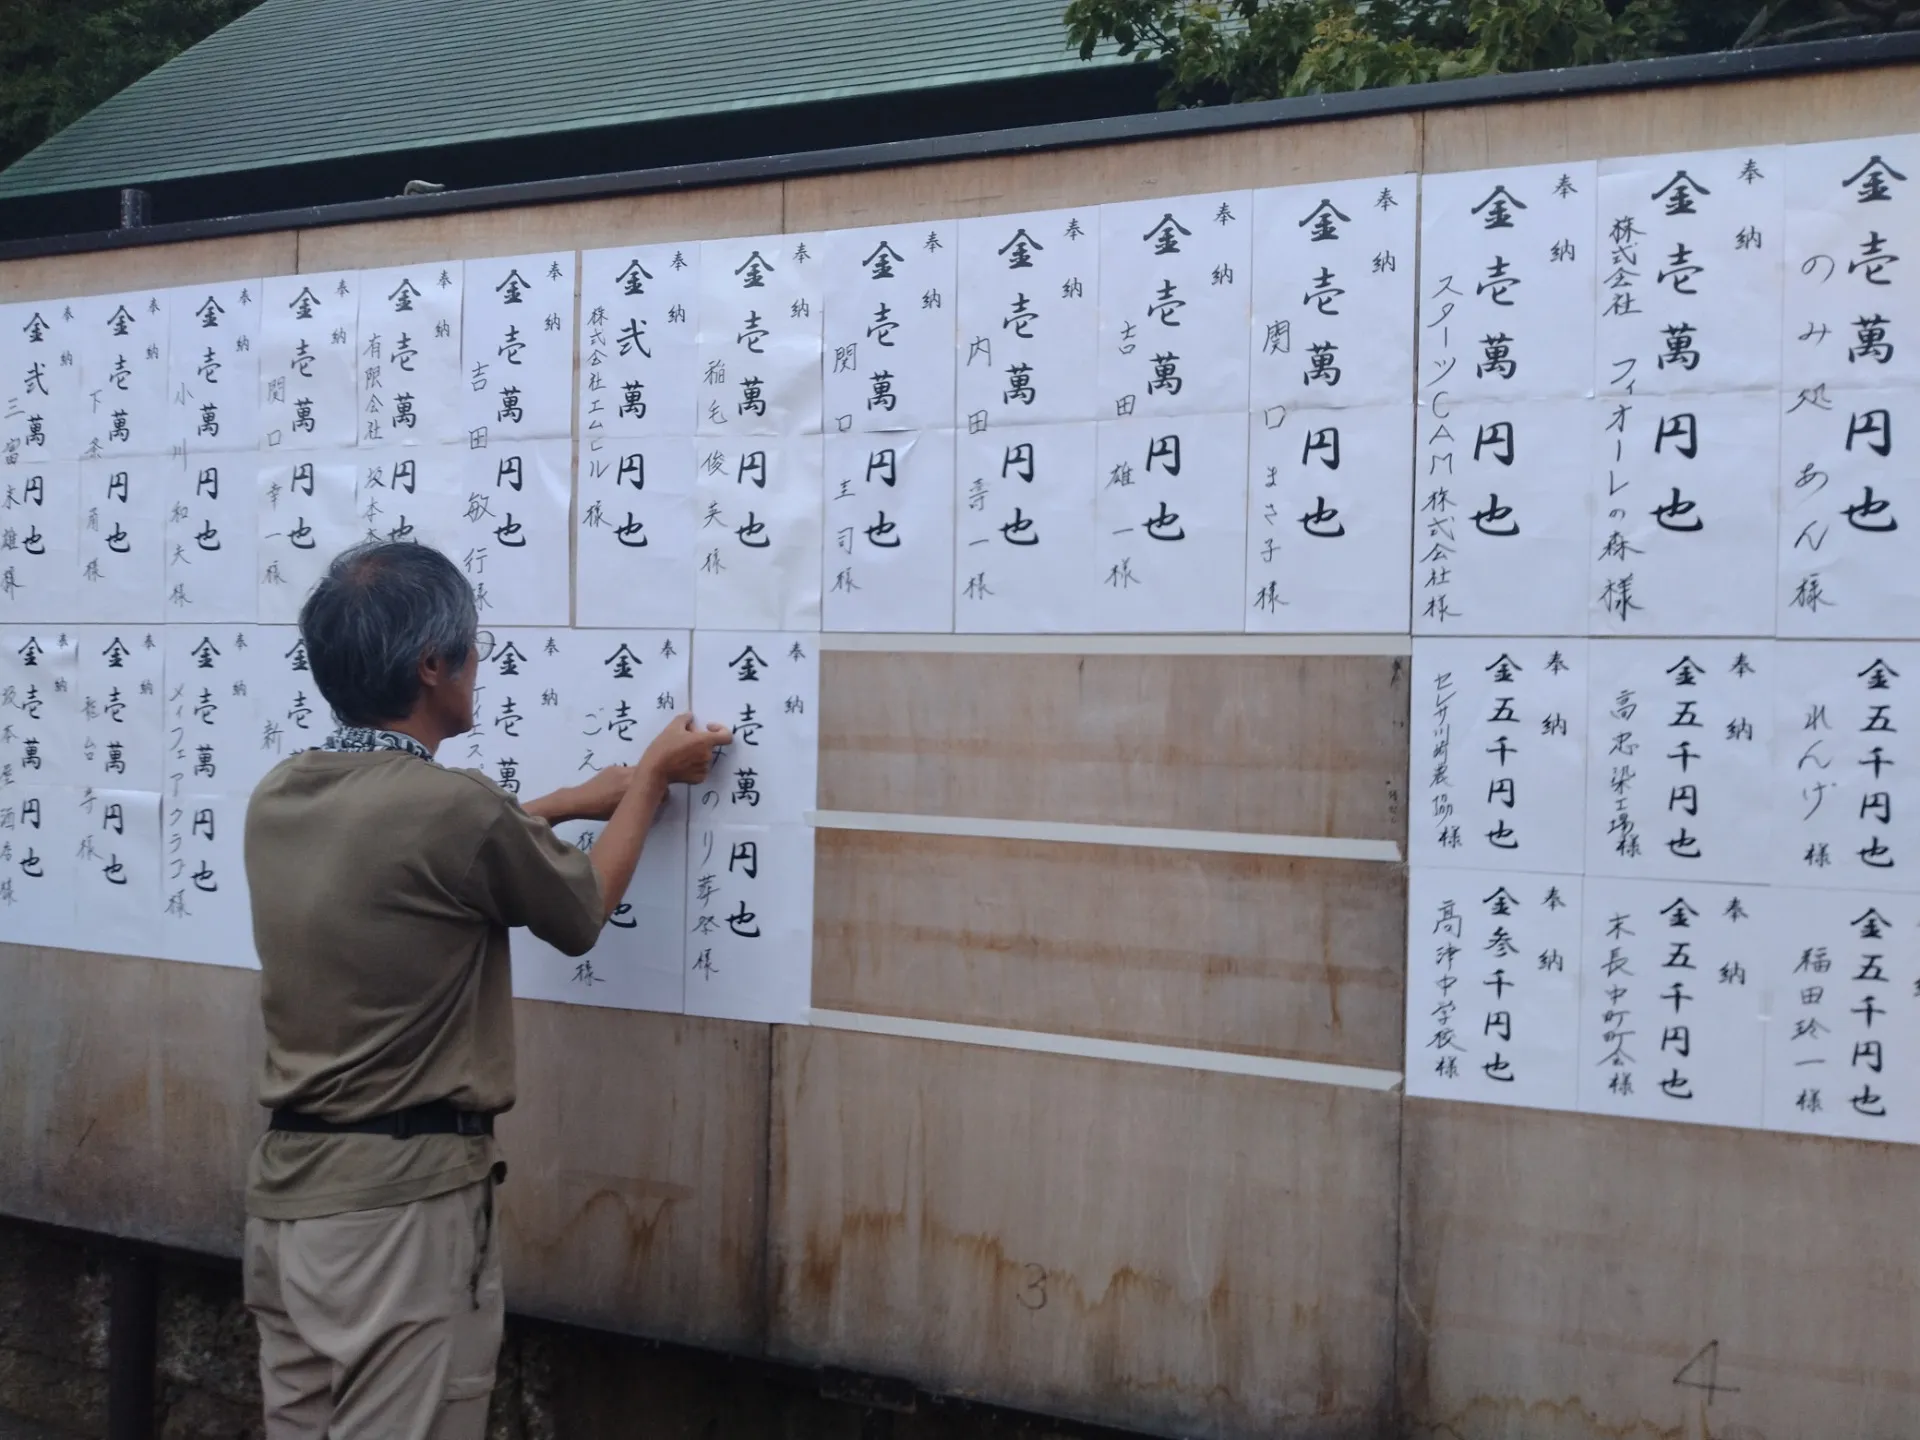 奉納
金壱萬円也
のみ処 あん様
奉納
金壱萬円也
株式会社 フィオーレの森様
奉納
金壱萬円也
スターツCAM株式会社様
奉納
金壱萬円也
関口まさ子様
奉納
金壱萬円也
吉田雄一様
奉納
金壱萬円也
内田壽一様
奉納
金壱萬円也
関口圭司様
奉納
金壱萬円也
稲毛俊英様
奉納
金弐萬円也
株式会社エムビル様
奉納
金壱萬円也
吉田敏行様
奉納
金壱萬円也
有限会社 坂本
奉納
金壱萬円也
関口幸一様
奉納
金壱萬円也
小川和夫様
奉納
金壱萬円也
下条 様
奉納
金弐萬円也
三富末雄様
金五千円也
れんげ様
奉納
金五千円也
高忠染工場様
奉納
金五千円也
セレサ川崎農協様
金五千円也
福田玲一様
奉納
金五千円也
末長中町町会様
奉納
金参千円也
高津中学校様
奉納
金壱萬円也
みのり葬祭様
奉納
金壱 也
ごえ 様
奉納
金壱萬
ケイエス
金壱
新
奉納
金壱萬円也
メィフェアクラブ様
奉納
金壱萬円也
龍台寺様
奉納
金壱萬円也
坂本屋酒店様
3
4